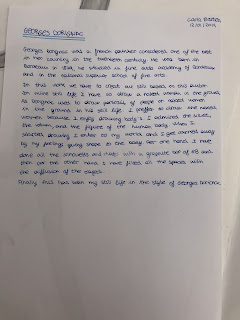 GEORGES DORIGNAC
Georges Dorignac was a french painter considered one of the best
in her country in the twentieth century. He was born in
Bordeaux in 1879, he studied in fine arts academy of Bordeaux
and in the national superior school of fine arts.
In this work we have to create our still based on this author.
In mine still life I have to draw a naked women in the ground,
As Dorignac used to draw portraits of people or naked women
in the ground. In his still life I prefer to draw the naked
women because I enjoy drawing body's. I admired the
and the figure of the human body. When I
started drawing I enter to my world and I get carried away
by my feelings giving shape to the body. For one hand I have
done all the silhouette and with a graphite bar of 6B and
then on the other hand I have filled all the spaces with
the diffusion of the
Finally this has been my still life in the style of Georges Dorignac.